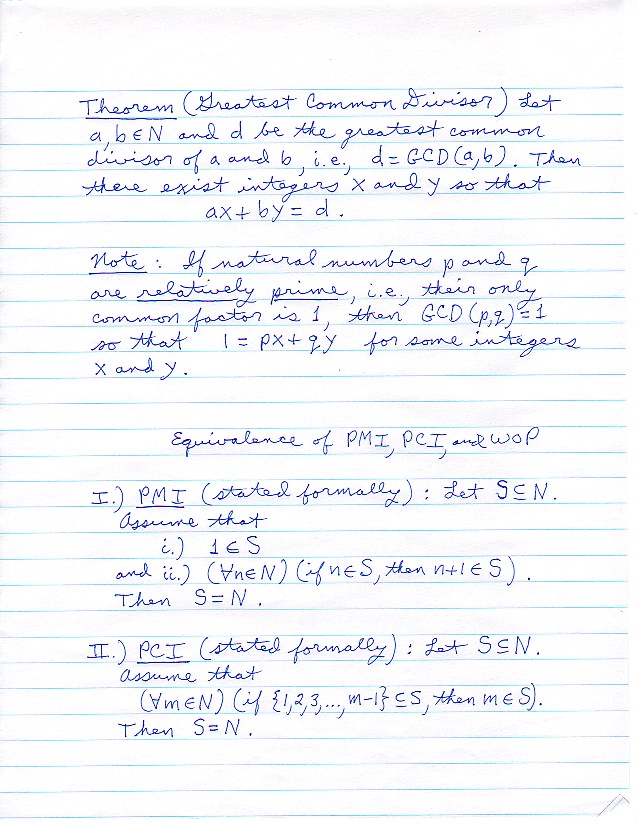 Theorem (Greatest Common Divisor) Let
a, b ∈ N and d be the greatest common
divisor of a and b, i.e., d = GCD (a,b). Then
there exist integers x and y so that
ax + by = d.
Note : If natural numbers p and q
are relatively prime, i.e., their only
common factor is 1, then GCD (p,q) = 1
so that 1 = px + qy for some integers
x and y.
Equivalence of PMI, PCI, and WOP
I.) PMI (stated formally) : Let S ⊆ N.
Assume that
i.) 1 ∈ S
and ii.) (∀n∈N) (if n∈S, then n+1 ∈ S).
Then S = N.
II.) PCI (stated formally) : Let S ⊆ N.
Assume that
(∀m∈N) (if {1,2,3,..., m-1} ⊆ S, then m ∈ S).
Then S = N.